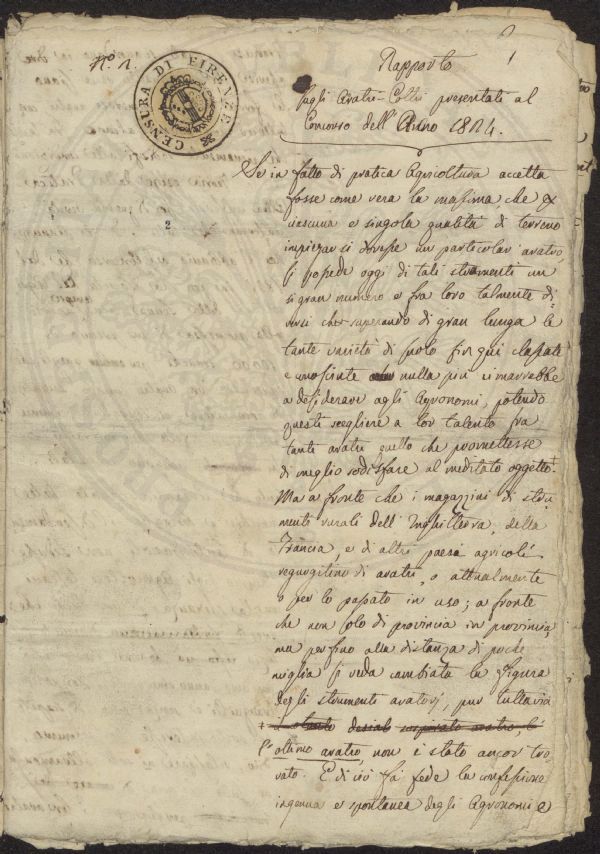 N.º 1.
CENSURA DI FIRENZE
Rapporto
sugli Aratri-Coltri presentati al
Concorso dell'Anno 1824.
Se in fatto di pratica Agricoltura accetta
fosse come vera la massima che ex
ciascuna e singola qualità di terreno
impiegar si dovesse un particolar aratro,
si possede oggi di tali strumenti un
sì gran numero e fra loro talmente di-
versi che superando di gran lunga le
tante varietà di suolo fin qui classate
e conosciute nulla più rimarrebbe
a desiderare agli Agronomi, potendo
questi scegliere a lor talento fra
tanti aratri quello che promettesse
di meglio sodisfare al meditato oggetto.
Ma a fronte che i magazzini di stru-
menti rurali dell'Inghilterra, della
Francia, e di altri paesi agricoli
regurgitino di aratri, o attualmente
o per lo passato in uso; a fronte
che non solo di provincia in provincia,
ma perfino alla distanza di poche
miglia si veda cambiata la figura
degli strumenti aratorj, pur tuttavia
sospirato aratro, l'
l'ottimo aratro, non è stato ancor tro-
vato. E di ciò fà fede la confessione
ingenua e spontanea degli Agronomi e
2